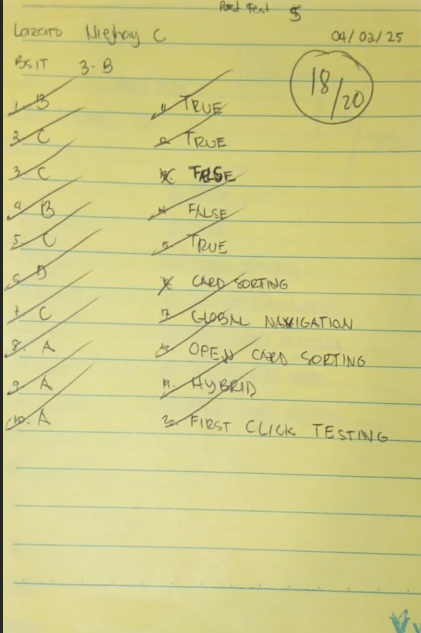 Post Test 5
Lazaro Nieghay C 04/02/25
BSIT 3-B
18/20
1. B
2. C
3. C
4. B
5. C
6. D
7. C
8. A
9. A
10. A
11. TRUE
12. TRUE
13. FALSE
14. FALSE
15. TRUE
16. CARD SORTING
17. GLOBAL NAVIGATION
18. OPEN CARD SORTING
19. HYBRID
20. FIRST CLICK TESTING